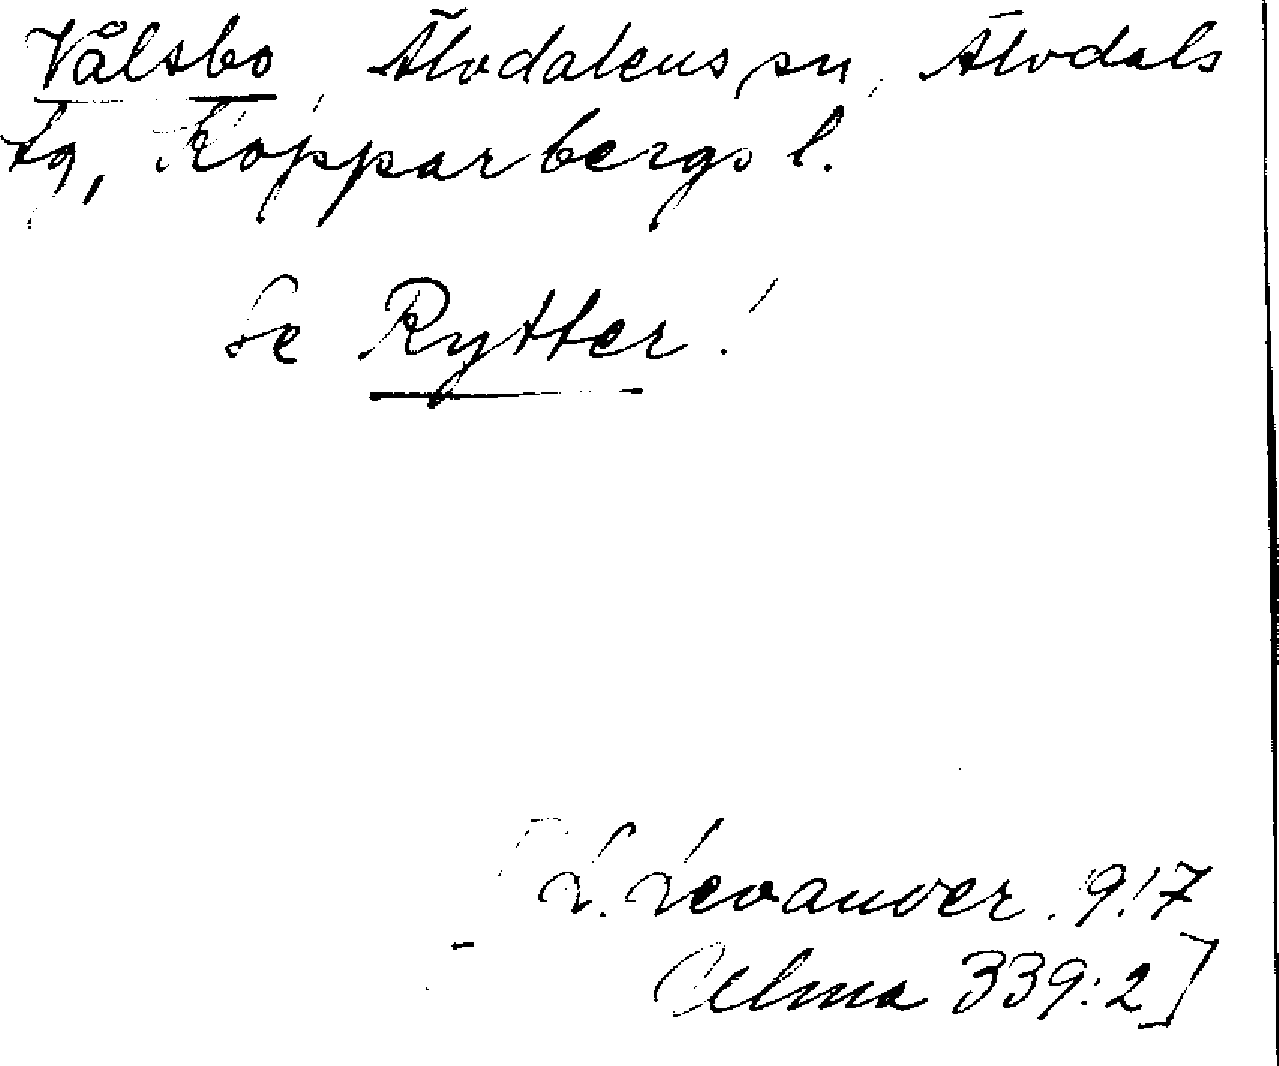 Vålsbo, Älvdalens sn, Älvdals
tg, Kopparbergs l.
Se Rytter!
[L. Levander. 917
Ulma 339:2]